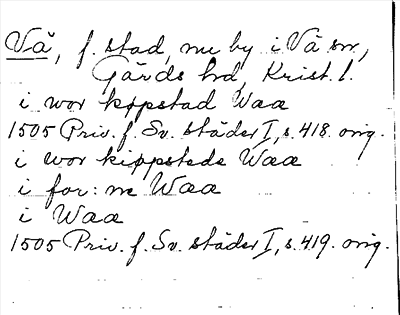 Vä, f. stad, nu by i Vä sn,
Gärds hd, Krist. l.
i wor køpstad Waa
1505 Priv. f. Sv. städer I, s. 418. orig.
i wor kiøpstede Waa
i for: ne Waa
i Waa
1505 Priv. f. Sv. städer I, s. 419. orig.